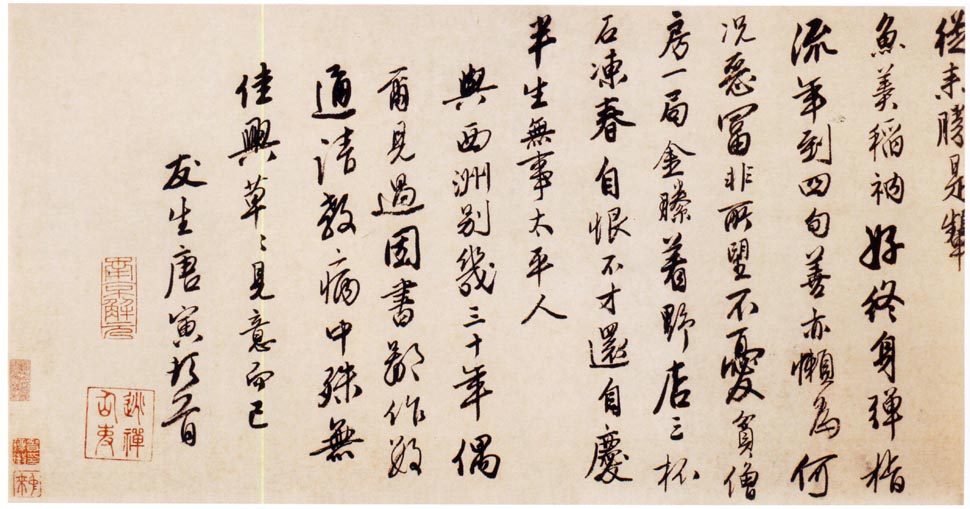 從来勝是顰
魚羹稻衲好終身彈指
流年到四旬善亦懶為何
況惡富非所望不憂貧僧
房一局金縢着野店三杯
石凍春自恨不才還自慶
半生無事太平人
與西洲别幾三十年偶
爾見過因書鄙作数
通請教病中殊無
佳興草〻見意而已
友生唐寅頓首
南京解元
逃禪仙吏